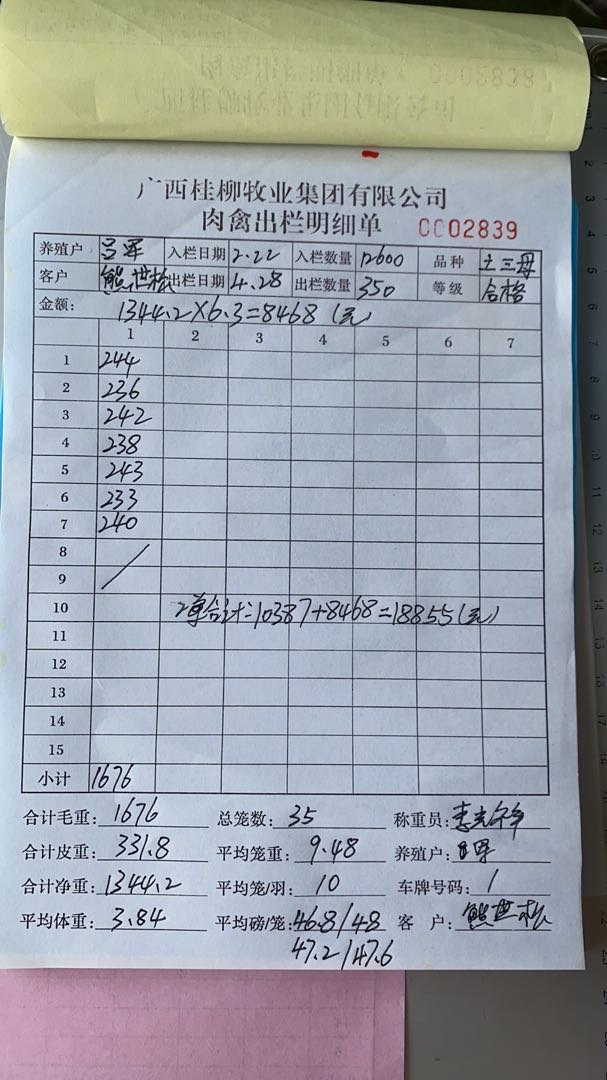 广西桂柳牧业集团有限公司
肉禽出栏明细单 0002839
养殖户 吕军 入栏日期 2.22 入栏数量 12600 品种 土三母
客户 熊世松 出栏日期 4.28 出栏数量 350 等级 合格
金额: 1344.2×6.3=8468(元)
1 2 3 4 5 6 7
1 244
2 236
3 242
4 238
5 243
6 233
7 240
8
9
10 2单合计:10387+8468=18855(元)
11
12
13
14
15
小计 1676
合计毛重: 1676 总笼数: 35 称重员:
合计皮重: 331.8 平均笼重: 9.48 养殖户:
合计净重: 1344.2 平均笼/羽: 10 车牌号码: /
平均体重: 3.84 平均磅/笼: 46.8/48 客 户: 熊世松
47.2/47.6